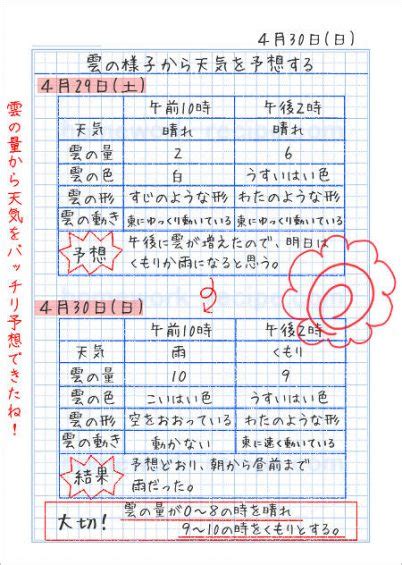 4月30日(日)
雲の様子から天気を予想する
4月29日(土)
午前10時 午後2時
天気 晴れ 晴れ
雲の量 2 6
雲の色 白 うすいはい色
雲の形 すじのような形 わたのような形
雲の動き 東にゆっくり動いている 東にゆっくり動いている
予想 午後に雲が増えたので、明日は
くもりか雨になると思う。
4月30日(日)
午前10時 午後2時
天気 雨 くもり
雲の量 10 9
雲の色 こいはい色 うすいはい色
雲の形 空をおおっている わたのような形
雲の動き 動かない 東に速く動いている
結果 予想どおり、朝から昼前まで
雨だった。
大切! 雲の量が0〜8の時を晴れ
9〜10の時をくもりとする。
雲の量から天気をバッチリ予想できたね!